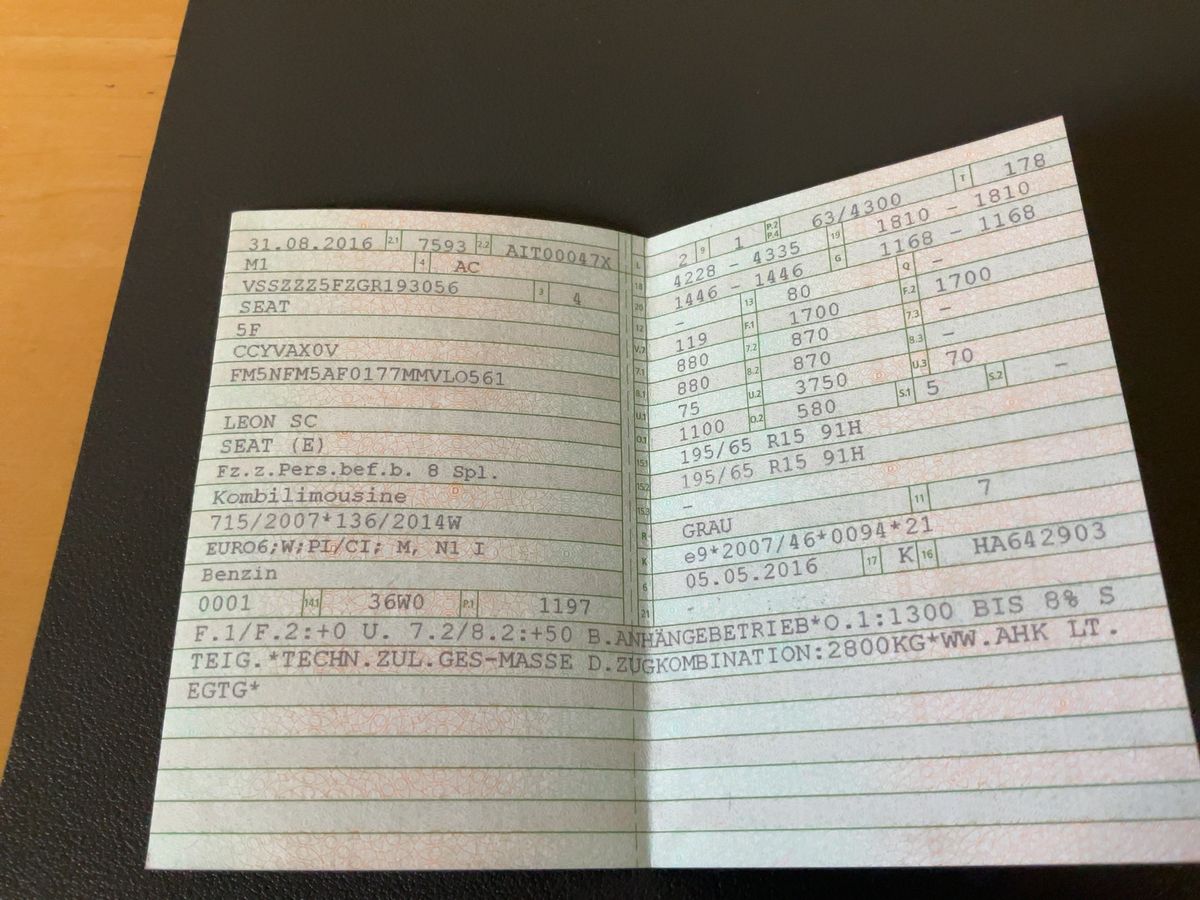 31.08.2016 2.1 7593 2.2 AIT00047X
M1 4 AC
VSSZZZ5FZGR193056 3 4
SEAT
5F
CCYVAX0V
FM5NFM5AF0177MMVLO561
LEON SC
SEAT (E)
Fz.z.Pers.bef.b. 8 Spl.
Kombilimousine
715/2007*136/2014W
EURO6;W;PI/CI; M, N1 I
Benzin
0001 14.1 36W0 P.1 1197
L 2 9 1 P.2 P.4 63/4300 T 178
18 4228 - 4335 19 1810 - 1810
20 1446 - 1446 G 1168 - 1168
12 - 13 80 Q -
V.7 119 F.1 1700 F.2 1700
7.1 880 7.2 870 7.3 -
8.1 880 8.2 870 8.3 -
U.1 75 U.2 3750 U.3 70
O.1 1100 O.2 580 S.1 5 S.2 -
15.1 195/65 R15 91H
15.2 195/65 R15 91H
15.3 -
R GRAU 11 7
K e9*2007/46*0094*21
6 05.05.2016 17 K 16 HA642903
21 -
F.1/F.2:+0 U. 7.2/8.2:+50 B.ANHÄNGEBETRIEB*O.1:1300 BIS 8% S
TEIG.*TECHN.ZUL.GES-MASSE D.ZUGKOMBINATION:2800KG*WW.AHK LT.
EGTG*